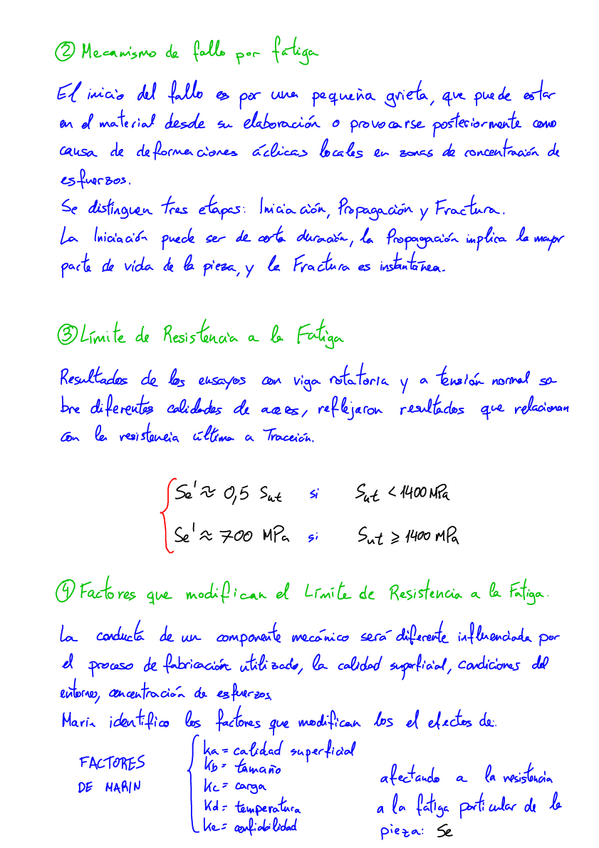 ② Mecanismo de fallo por fatiga
El inicio del fallo es por una pequeña grieta, que puede estar
en el material desde su elaboración o provocarse posteriormente como
causa de deformaciones cíclicas locales en zonas de concentración de
esfuerzos.
Se distinguen tres etapas: Iniciación, Propagación y Fractura.
La Iniciación puede ser de corta duración, la Propagación implica la mayor
parte de vida de la pieza, y la Fractura es instantánea.
③ Límite de Resistencia a la Fatiga
Resultados de los ensayos con viga rotatoria y a tensión normal so
bre diferentes calidades de aceros, reflejaron resultados que relacionan
con la resistencia última a Tracción.
Se' ≈ 0,5 Sut si Sut < 1400 MPa
Se' ≈ 700 MPa si Sut ≥ 1400 MPa
④ Factores que modifican el Límite de Resistencia a la Fatiga.
La conducta de un componente mecánico será diferente influenciada por
el proceso de fabricación utilizado, la calidad superficial, condiciones del
entorno, concentración de esfuerzos
Marin identifico los factores que modifican los el efectos de:
FACTORES
DE MARIN
Ka = calidad superficial
Kb = tamaño
Kc = carga
Kd = temperatura
Ke = confiabilidad
afectando a la resistencia
a la fatiga particular de la
pieza: Se